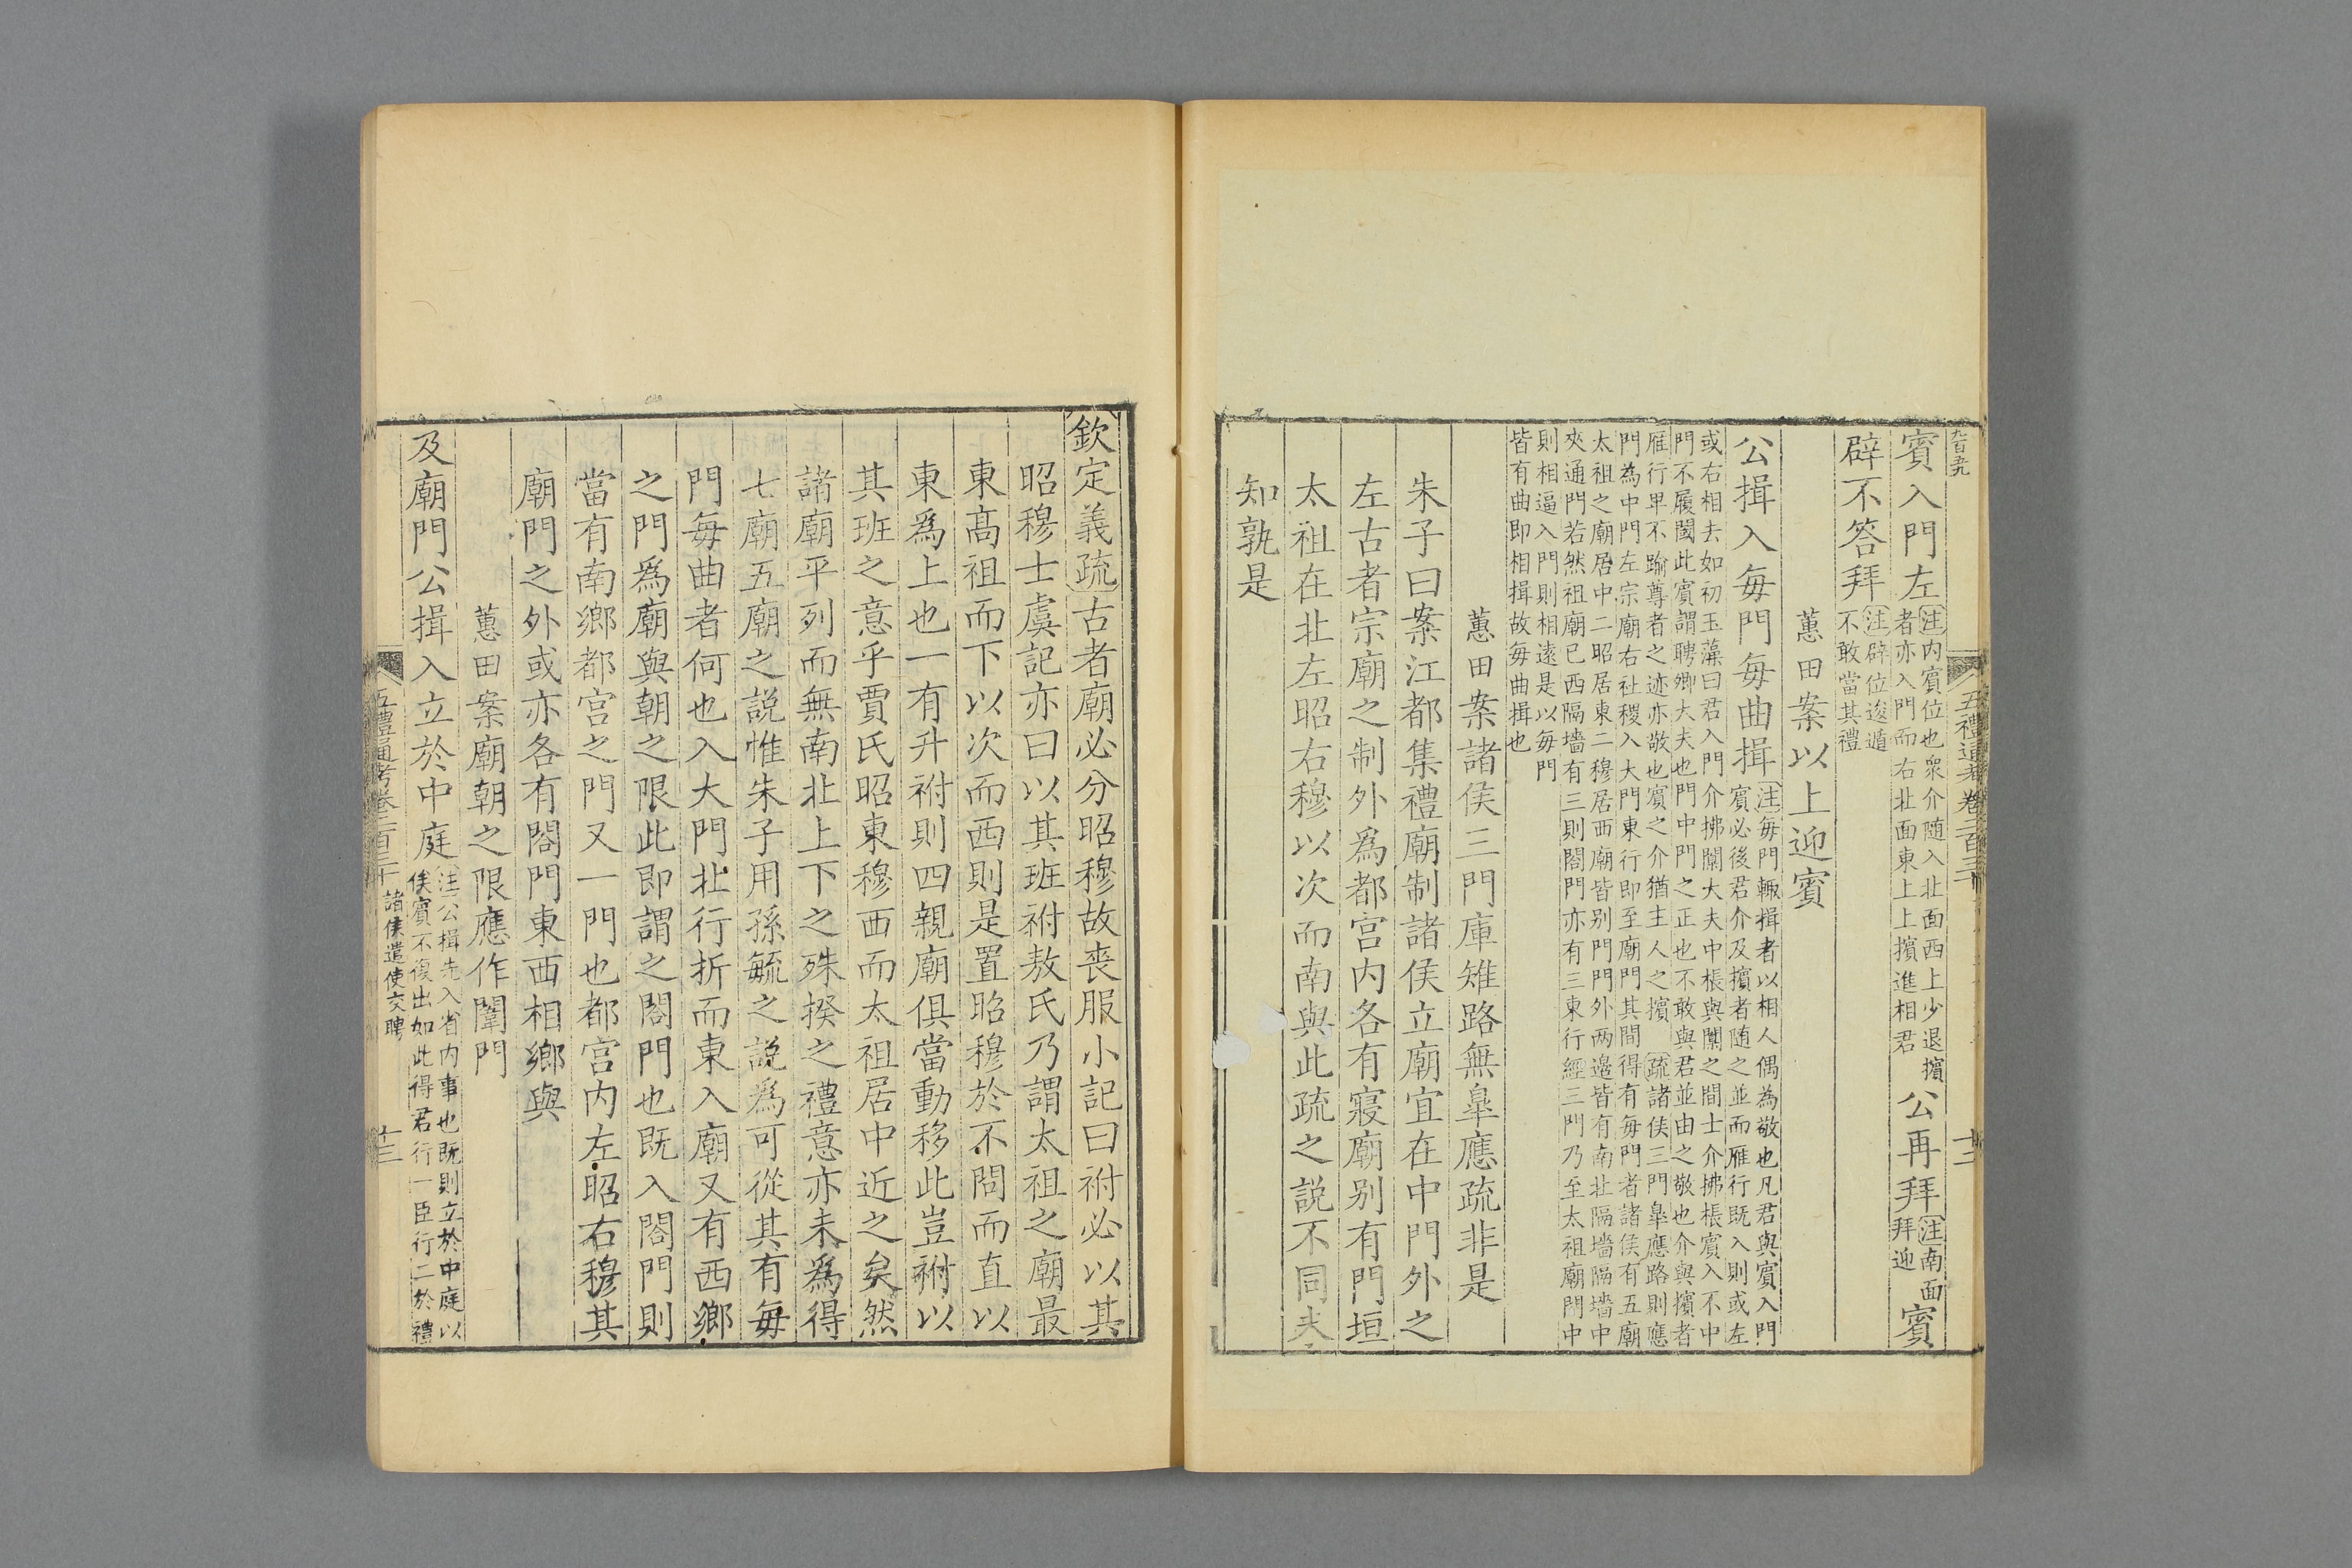 五禮通考卷二百三十
十二
賓入門左注内賓位也衆介隨入北面西上少退擯者亦入門而右北面東上上擯進相君公再拜注南面拜迎賓
辟不答拜注辟位逡遁不敢當其禮
蕙田案以上迎賓
公揖入每門每曲揖注每門輒揖者以相人偶為敬也凡君與賓入門賓必後君介及擯者隨之並而雁行既入則或左
或右相去如初玉藻曰君入門介拂闑大夫中棖與闑之間士介拂棖賓入不中門不履閾此賓謂聘卿大夫也門中門之正也不敢與君並由之敬也介與擯者
雁行卑不踰尊者之迹亦敬也賓之介猶主人之擯疏諸侯三門皐應路則應門為中門左宗廟右社稷入大門東行即至廟門其間得有每門者諸侯有五廟
太祖之廟居中二昭居東二穆居西廟皆别門門外兩邉皆有南北隔墻隔墻中夾通門若然祖廟已西隔墻有三則閤門亦有三東行經三門乃至太祖廟門中
則相逼入門則相逺是以每門皆有曲即相揖故每曲揖也
蕙田案諸侯三門庫雉路無皐應疏非是
朱子曰案江都集禮廟制諸侯立廟宜在中門外之
左古者宗廟之制外為都宫内各有寢廟别有門垣
太祖在北左昭右穆以次而南與此疏之說不同未
知孰是
欽定義疏古者廟必分昭穆故喪服小記曰祔必以其
昭穆士虞記亦曰以其班祔敖氏乃謂太祖之廟最
東髙祖而下以次而西則是置昭穆於不問而直以
東為上也一有升祔則四親廟俱當動移此豈祔以
其班之意乎賈氏昭東穆西而太祖居中近之矣然
諸廟平列而無南北上下之殊揆之禮意亦未為得
七廟五廟之說惟朱子用孫毓之說為可從其有每
門每曲者何也入大門北行折而東入廟又有西鄉
之門為廟與朝之限此即謂之閤門也既入閤門則
當有南鄉都宫之門又一門也都宫内左昭右穆其
廟門之外或亦各有閤門東西相鄉與
蕙田案廟朝之限應作闈門
及廟門公揖入立於中庭注公揖先入省内事也既則立於中庭以俟賓不復出如此得君行一臣行二於禮
五禮通考卷二百三十
諸侯遣使交聘
十三